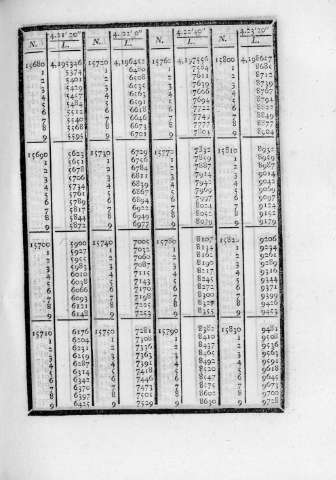 4.21'20" 4.22'0" 4.22'40" 4.23'20"
N. L. N. L. N. L. N. L.
15680 4,195346 15720 4,196452 15760 4,197556 15800 4,198657
1 5374 1 6480 1 7584 1 8685
2 5401 2 6508 2 7611 2 8712
3 5429 3 6535 3 7639 3 8739
4 5457 4 6563 4 7666 4 8767
5 5484 5 6591 5 7694 5 8794
6 5512 6 6618 6 7722 6 8822
7 5540 7 6646 7 7749 7 8849
8 5568 8 6673 8 7777 8 8877
9 5595 9 6701 9 7804 9 8904
15690 5623 15730 6729 15770 7832 15810 8932
1 5651 1 6756 1 7859 1 8959
2 5678 2 6784 2 7887 2 8987
3 5706 3 6811 3 7914 3 9014
4 5734 4 6839 4 7942 4 9042
5 5761 5 6867 5 7969 5 9069
6 5789 6 6894 6 7997 6 9097
7 5817 7 6922 7 8024 7 9124
8 5844 8 6949 8 8052 8 9152
9 5872 9 6977 9 8079 9 9179
15700 5900 15740 7005 15780 8107 15820 9206
1 5927 1 7032 1 8134 1 9234
2 5955 2 7060 2 8162 2 9261
3 5983 3 7087 3 8190 3 9289
4 6010 4 7115 4 8217 4 9316
5 6038 5 7143 5 8245 5 9344
6 6066 6 7170 6 8272 6 9371
7 6093 7 7198 7 8300 7 9399
8 6121 8 7225 8 8327 8 9426
9 6148 9 7253 9 8355 9 9453
15710 6176 15750 7281 15790 8382 15830 9481
1 6204 1 7308 1 8410 1 9508
2 6231 2 7336 2 8437 2 9536
3 6259 3 7363 3 8465 3 9563
4 6287 4 7391 4 8492 4 9591
5 6314 5 7418 5 8520 5 9618
6 6342 6 7446 6 8547 6 9645
7 6370 7 7473 7 8575 7 9673
8 6397 8 7501 8 8602 8 9700
9 6425 9 7529 9 8630 9 9728